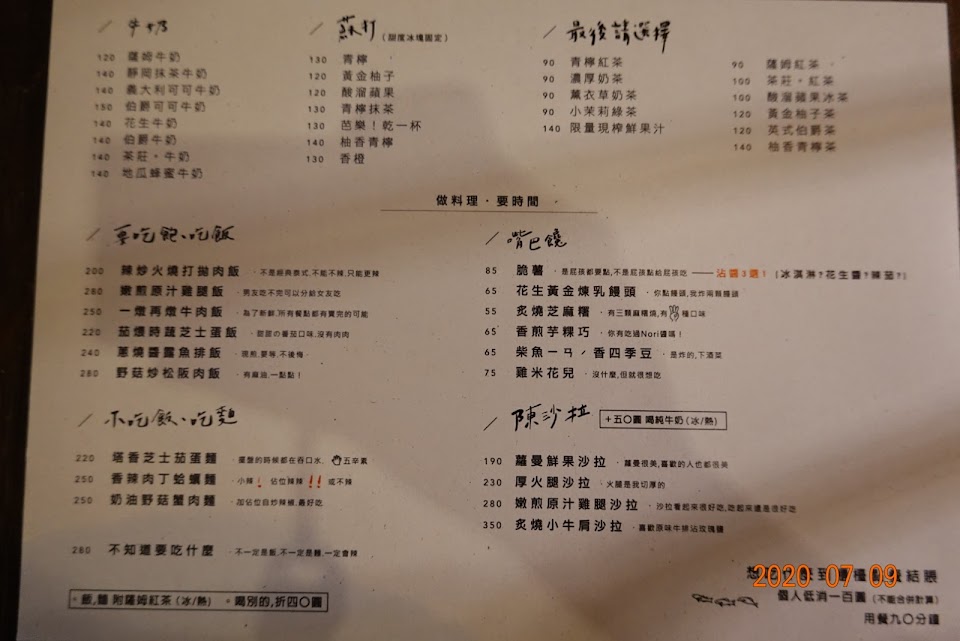 牛奶
120 薩姆牛奶
140 靜岡抹茶牛奶
140 義大利可可牛奶
150 伯爵可可牛奶
140 花生牛奶
140 伯爵牛奶
140 茶莊。牛奶
140 地瓜蜂蜜牛奶
蘇打(甜度冰塊固定)
130 青檸
120 黃金柚子
120 酸溜蘋果
130 青檸抹茶
130 芭樂!乾一杯
140 柚香青檸
130 香橙
最後請選擇
90 青檸紅茶
90 濃厚奶茶
90 薰衣草奶茶
90 小茉莉綠茶
140 限量現榨鮮果汁
90 薩姆紅茶
100 茶莊。紅茶
100 酸溜蘋果冰茶
120 黃金柚子茶
120 英式伯爵茶
140 柚香青檸茶
做料理・要時間
要吃飽、吃飯
200 辣炒火燒打拋肉飯 ・不是經典泰式,不能不辣,只能更辣
280 嫩煎原汁雞腿飯 ・男友吃不完可以分給女友吃
250 一燉再燉牛肉飯 ・為了新鮮,所有餐點都有賣完的可能
220 茄煨時蔬芝士蛋飯 ・甜甜の番茄口味,沒有肉肉
240 蔥燒醬露魚排飯 ・現煎,要等,不後悔・
280 野菇炒松阪肉飯 ・有麻油,一點點!
嘴巴饞
85 脆薯 ・是屁孩都要點,不是屁孩點給屁孩吃 —— 沾醬3選1 [冰淇淋?花生醬?辣茄?]
65 花生黃金煉乳饅頭 ・你點饅頭,我炸兩顆饅頭
55 炙燒芝麻糬 ・有三顆麻糬燒,有 種口味
65 香煎芋粿巧 ・你有吃過Nori醬嗎!
65 柴魚ㄧㄢˊ香四季豆 ・是炸的,下酒菜
75 雞米花兒 ・沒什麼,但就很想吃
不吃飯、吃麵
220 塔香芝士茄蛋麵 ・擺盤的時候都在吞口水, 五辛素
250 香辣肉丁蛤蠣麵 ・小辣! 佔位辣辣!! 或不辣
250 奶油野菇蟹肉麵 ・加佔位自炒辣椒,最好吃
280 不知道要吃什麼 ・不一定是飯,不一定是麵,一定會辣
・飯,麵 附薩姆紅茶(冰/熱) ・喝別的,折四〇圓
陳沙拉 +五〇圓 喝純牛奶(冰/熱)
190 蘿曼鮮果沙拉 ・蘿曼很美,喜歡的人也都很美
230 厚火腿沙拉 ・火腿是我切厚的
280 嫩煎原汁雞腿沙拉 ・沙拉看起來很好吃,吃起來還是很好吃
350 炙燒小牛肩沙拉 ・喜歡原味牛排沾玫瑰鹽
結賬
2020 07 09
個人低消一百圓(不能合併計算)
用餐九〇分鐘